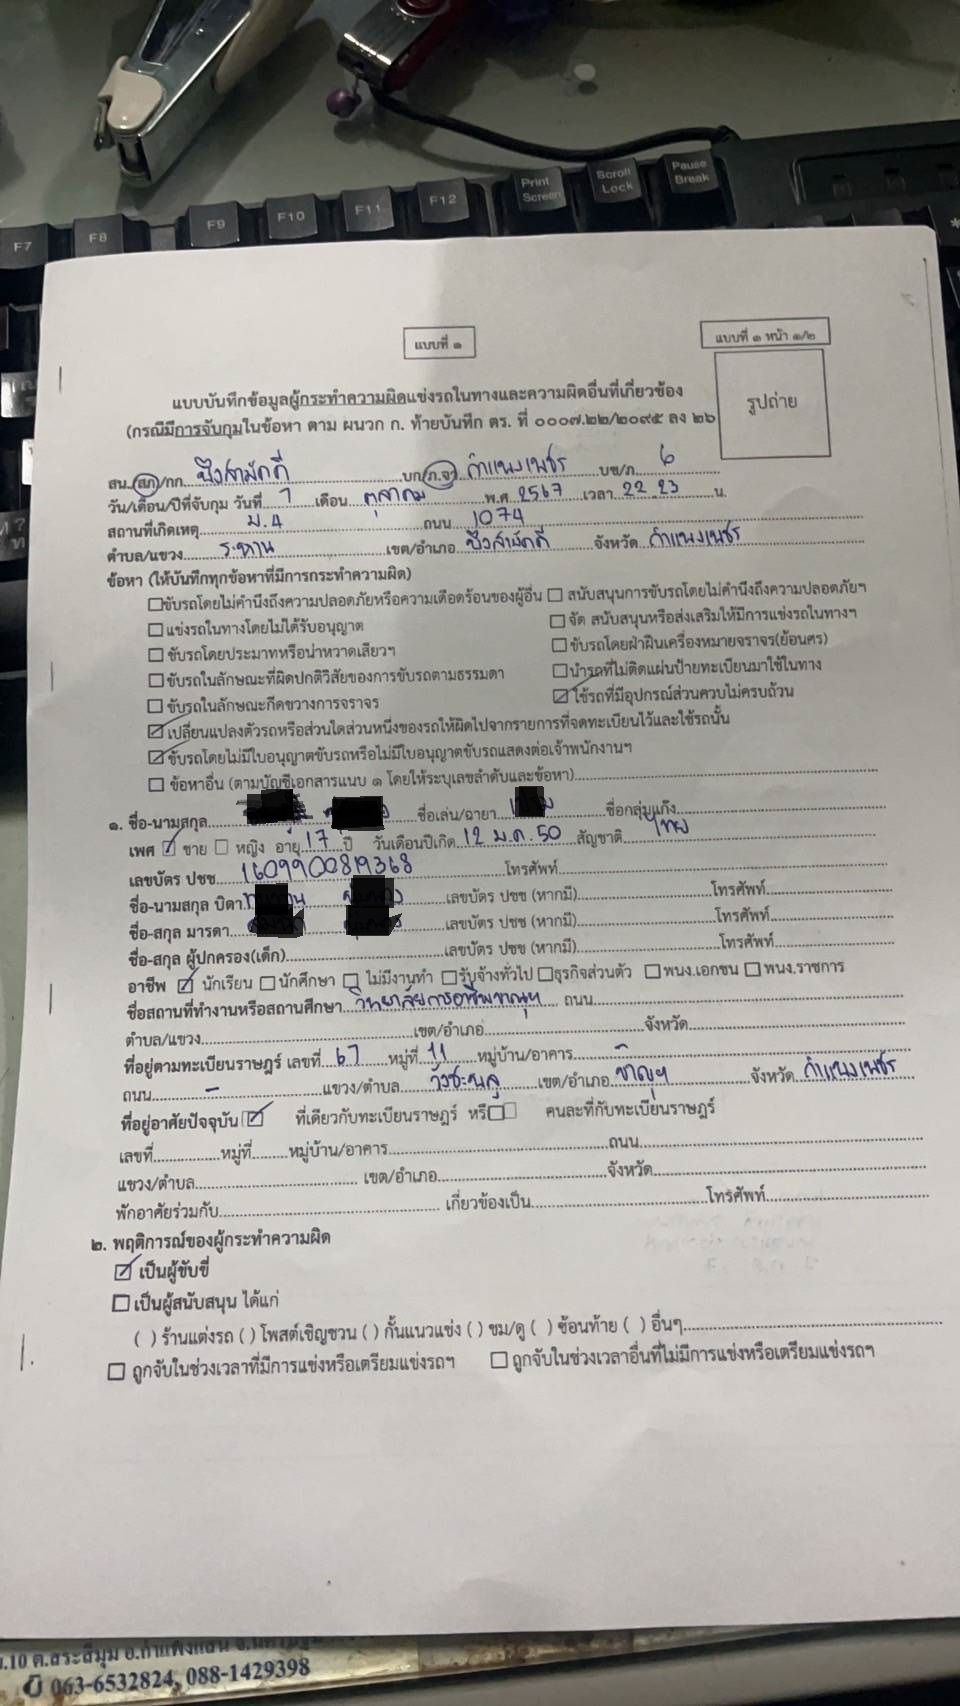 F7 F8 F9 F10 F11 F12 Print Screen Scroll Lock Pause Break
แบบที่ ๑
แบบที่ ๑ หน้า ๑/๒
รูปถ่าย
แบบบันทึกข้อมูลผู้กระทำความผิดแข่งรถในทางและความผิดอื่นที่เกี่ยวข้อง
(กรณีมีการจับกุมในข้อหา ตาม ผนวก ก. ท้ายบันทึก ตร. ที่ ๐๐๐๗.๒๒/๒๐๙๕ ลง ๒๖
สน./สภ/กก. บึงสามัคคี บก/ภ.จว กำแพงเพชร บช/ภ. 6
วัน/เดือน/ปีที่จับกุม วันที่ 7 เดือน ตุลาคม พ.ศ. 2567 เวลา 22 23 น.
สถานที่เกิดเหตุ ม.4 ถนน 1074
ตำบล/แขวง ระหาน เขต/อำเภอ บึงสามัคคี จังหวัด กำแพงเพชร
ข้อหา (ให้บันทึกทุกข้อหาที่มีการกระทำความผิด)
☐ ขับรถโดยไม่คำนึงถึงความปลอดภัยหรือความเดือดร้อนของผู้อื่น ☐ สนับสนุนการขับรถโดยไม่คำนึงถึงความปลอดภัยฯ
☐ แข่งรถในทางโดยไม่ได้รับอนุญาต ☐ จัด สนับสนุนหรือส่งเสริมให้มีการแข่งรถในทางฯ
☐ ขับรถโดยประมาทหรือน่าหวาดเสียวฯ ☐ ขับรถโดยฝ่าฝืนเครื่องหมายจราจร(ย้อนศร)
☐ ขับรถในลักษณะที่ผิดปกติวิสัยของการขับรถตามธรรมดา ☐ นำรถที่ไม่ติดแผ่นป้ายทะเบียนมาใช้ในทาง
☐ ขับรถในลักษณะกีดขวางการจราจร ☑ ใช้รถที่มีอุปกรณ์ส่วนควบไม่ครบถ้วน
☑ เปลี่ยนแปลงตัวรถหรือส่วนใดส่วนหนึ่งของรถให้ผิดไปจากรายการที่จดทะเบียนไว้และใช้รถนั้น
☑ ขับรถโดยไม่มีใบอนุญาตขับรถหรือไม่มีใบอนุญาตขับรถแสดงต่อเจ้าพนักงานฯ
☐ ข้อหาอื่น (ตามบัญชีเอกสารแนบ ๑ โดยให้ระบุเลขลำดับและข้อหา)
๑. ชื่อ-นามสกุล ชื่อเล่น/ฉายา ชื่อกลุ่มแก๊ง
เพศ ☑ ชาย ☐ หญิง อายุ 17 ปี วันเดือนปีเกิด 12 ม.ค. 50 สัญชาติ ไทย
เลขบัตร ปชช. 1609900819368 โทรศัพท์
ชื่อ-นามสกุล บิดา เลขบัตร ปชช (หากมี) โทรศัพท์
ชื่อ-สกุล มารดา เลขบัตร ปชช (หากมี) โทรศัพท์
ชื่อ-สกุล ผู้ปกครอง(เด็ก) เลขบัตร ปชช (หากมี) โทรศัพท์
อาชีพ ☑ นักเรียน ☐ นักศึกษา ☐ ไม่มีงานทำ ☐ รับจ้างทั่วไป ☐ ธุรกิจส่วนตัว ☐ พนง.เอกชน ☐ พนง.ราชการ
ชื่อสถานที่ทำงานหรือสถานศึกษา วิทยาลัยการอาชีพขาณุฯ ถนน
ตำบล/แขวง เขต/อำเภอ จังหวัด
ที่อยู่ตามทะเบียนราษฎร์ เลขที่ 67 หมู่ที่ 11 หมู่บ้าน/อาคาร -
ถนน - แขวง/ตำบล วังชะพลู เขต/อำเภอ ขาณุฯ จังหวัด กำแพงเพชร
ที่อยู่อาศัยปัจจุบัน ☑ ที่เดียวกับทะเบียนราษฎร์ หรื ☐ คนละที่กับทะเบียนราษฎร์
เลขที่ หมู่ที่ หมู่บ้าน/อาคาร ถนน
แขวง/ตำบล เขต/อำเภอ จังหวัด
พักอาศัยร่วมกับ เกี่ยวข้องเป็น โทรศัพท์
๒. พฤติการณ์ของผู้กระทำความผิด
☑ เป็นผู้ขับขี่
☐ เป็นผู้สนับสนุน ได้แก่
( ) ร้านแต่งรถ ( ) โพสต์เชิญชวน ( ) กั้นแนวแข่ง ( ) ชม/ดู ( ) ซ้อนท้าย ( ) อื่นๆ
☐ ถูกจับในช่วงเวลาที่มีการแข่งหรือเตรียมแข่งรถฯ ☐ ถูกจับในช่วงเวลาอื่นที่ไม่มีการแข่งหรือเตรียมแข่งรถฯ
.10 ต.สระสี่มุม อ.กำแพงแสน
063-6532824, 088-1429398